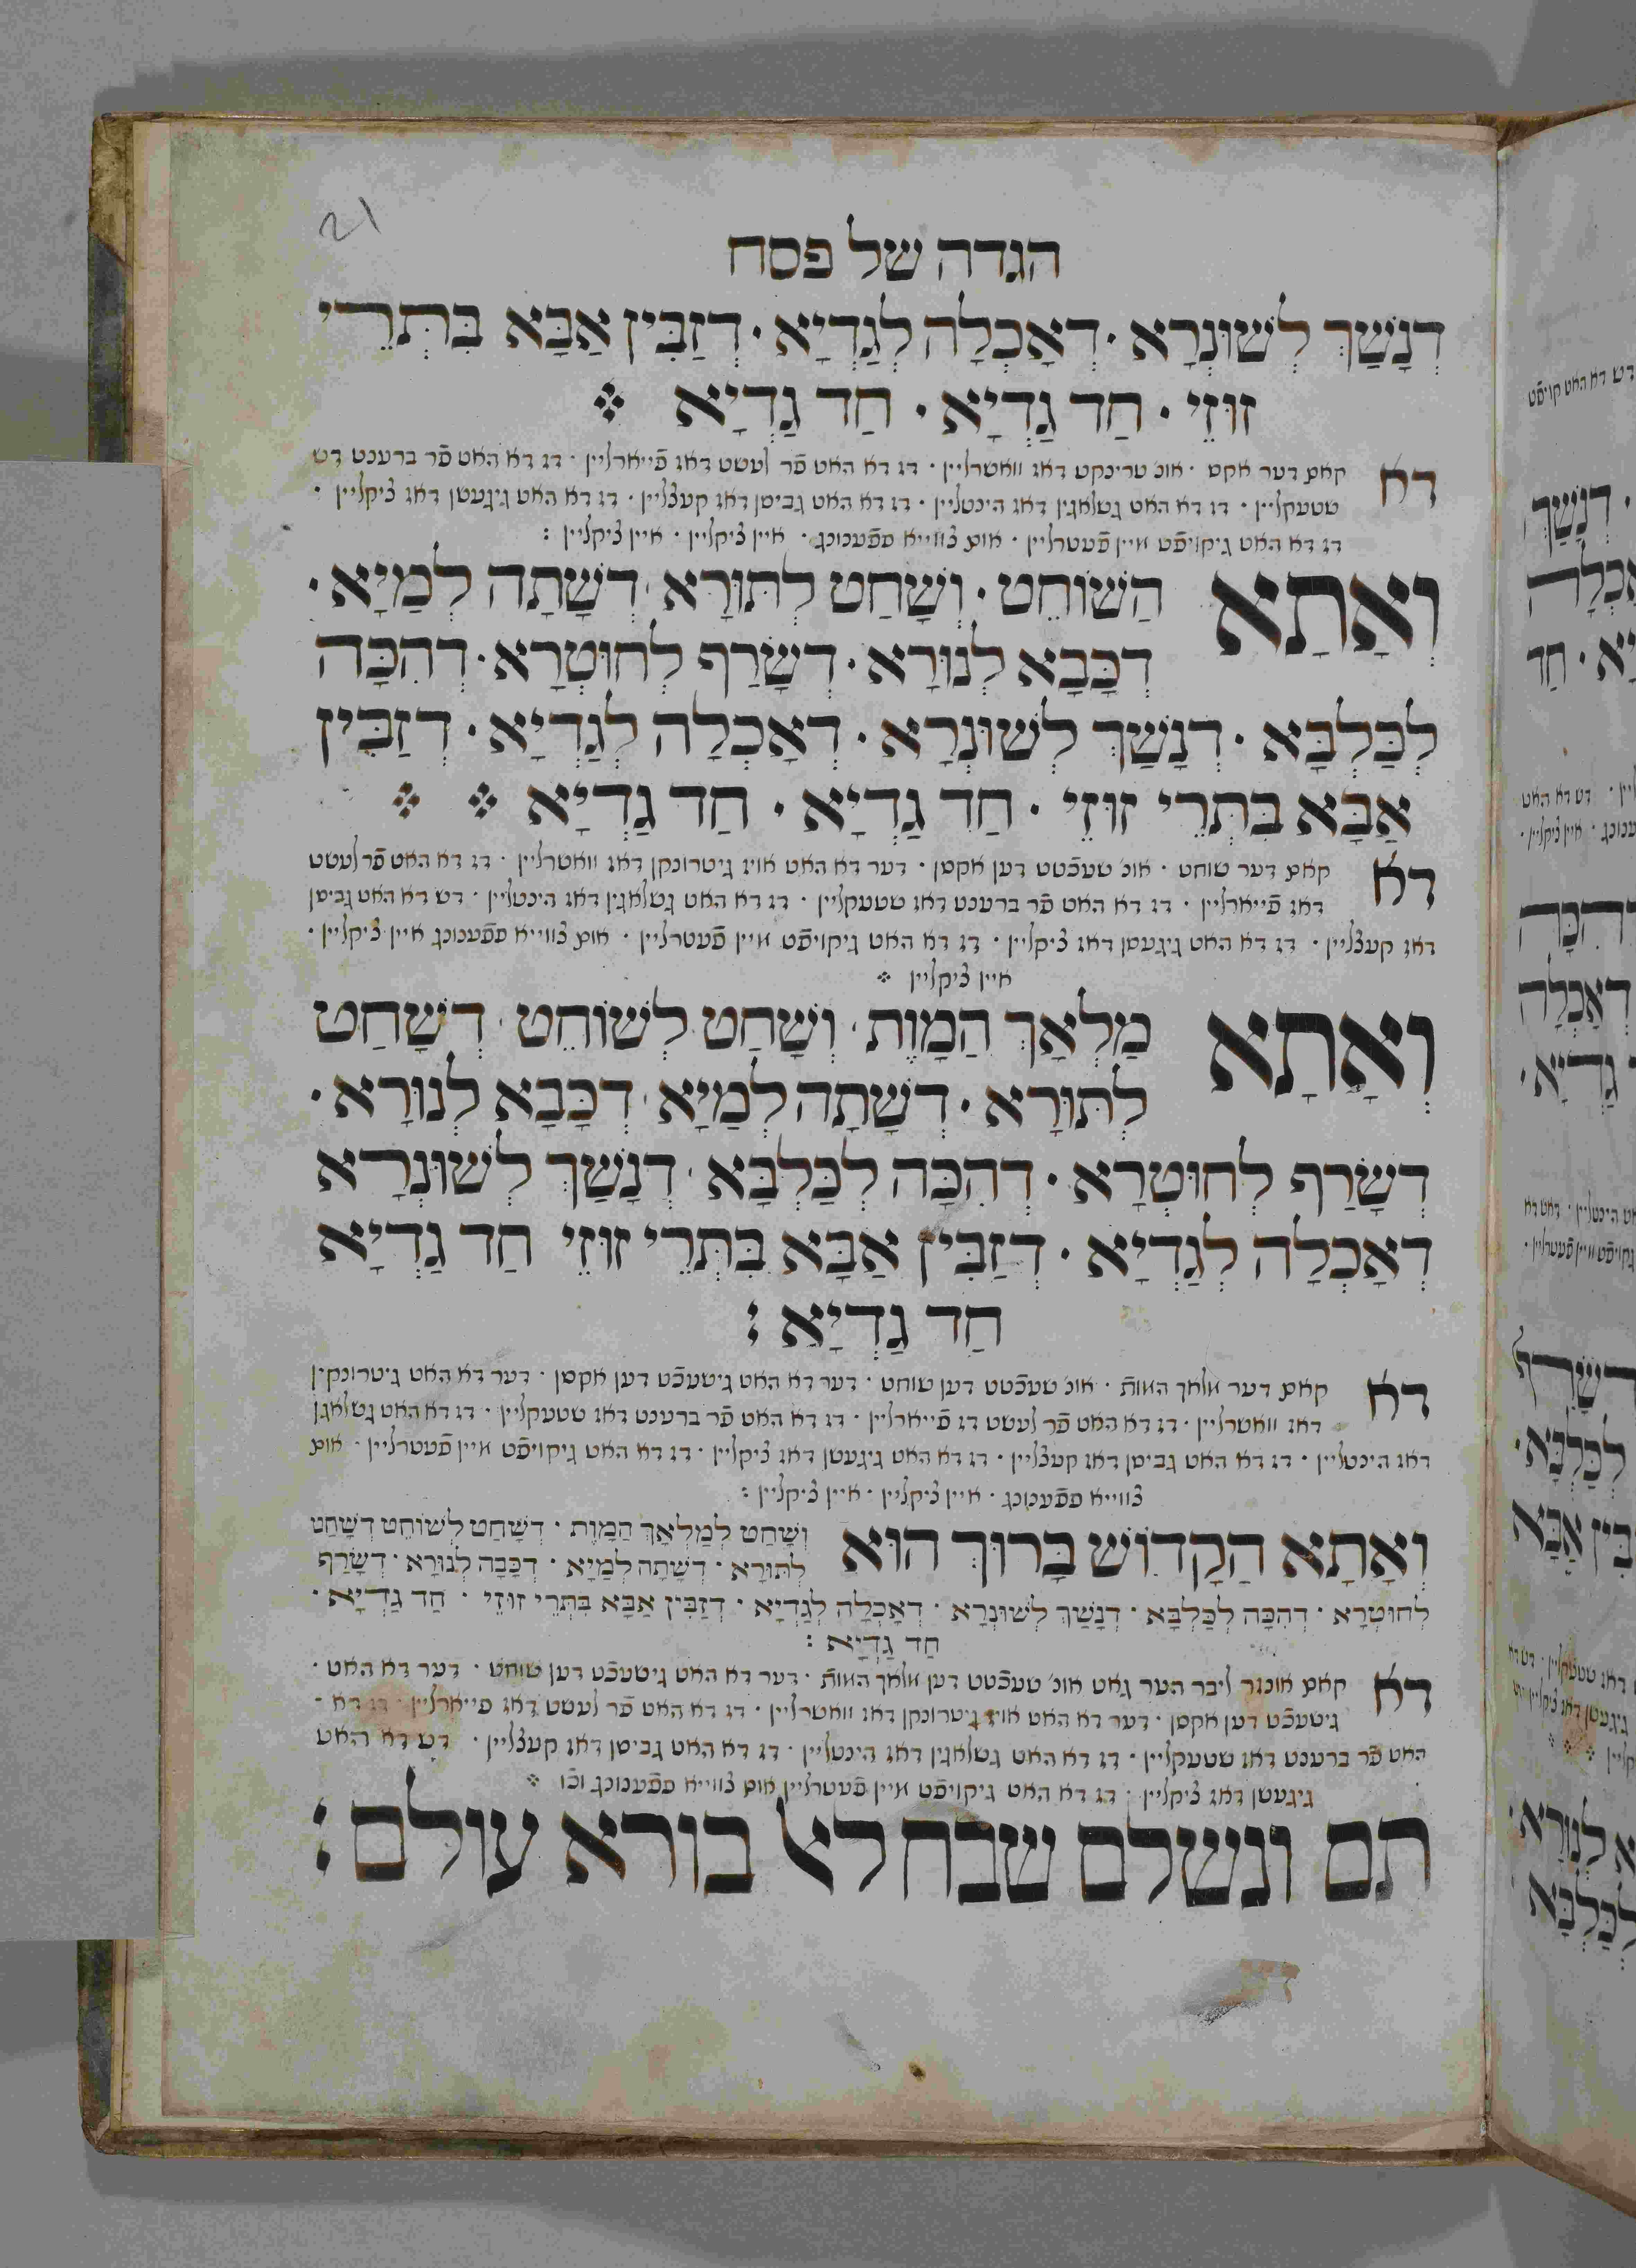 הגדה של פסח
דְנָשַׁךְ לְשׁוּנְרָא · דְאָכְלָה לְגַדְיָא · דְזַבִּין אַבָּא בִּתְרֵי
זוּזֵי · חַד גַדְיָא · חַד גַדְיָא
דא קאם דער אקס · אונ' טרינקט דאז וואסרליין · דז דא האט פֿר לעשט דאז פֿייארליין · דז דא האט פֿר ברענט דש
שטעקליין · דז דא האט גשלאגין דאז הינטליין · דז דא האט גביסן דאז קעצליין · דז דא האט גיגעסן דאז ציקליין ·
דז דא האט גיקויפֿט איין פֿעטרליין · אום צווייא פפֿענונג · איין ציקליין · איין ציקליין :
וְאָתָא הַשׁוֹחֵט · וְשָׁחַט לְתוֹרָא · דְשָׁתָה לְמַיָא ·
דְכָּבָא לְנוּרָא · דְשָׂרַף לְחוּטְרָא · דְהִכָּה
לְכַּלְבָּא · דְנָשַׁךְ לְשׁוּנְרָא · דְאָכְלָה לְגַדְיָא · דְזַבִּין
אַבָּא בִּתְרֵי זוּזֵי · חַד גַדְיָא · חַד גַדְיָא
דא קאם דער שוחט · אונ' שעכֿטט דען אקסן · דער דא האט אויז גיטרונקן דאז וואסרליין · דז דא האט פֿר לעשט
דאז פֿייארליין · דז דא האט פֿר ברענט דאז שטעקליין · דז דא האט גשלאגין דאז הינטליין · דש דא האט גביסן
דאז קעצליין · דז דא האט גיגעסן דאז ציקליין · דז דא האט גיקויפֿט איין פֿעטרליין · אום צווייא פפֿענונג איין ציקליין ·
איין ציקליין
וְאָתָא מַלְאָךְ הַמָוֶת · וְשָׁחַט לְשׁוֹחֵט · דְשָׁחַט
לְתוּרָא · דְשָׁתָה לְמַיָא · דְכָּבָא לְנוּרָא ·
דְשָׂרַף לְחוּטְרָא · דְהִכָּה לְכַּלְבָּא · דְנָשַׁךְ לְשׁוּנְרָא
דְאָכְלָה לְגַדְיָא · דְזַבִּין אַבָּא בִּתְרֵי זוּזֵי חַד גַדְיָא
חַד גַדְיָא :
דא קאם דער מלאך המות · אונ' שעכֿטט דען שוחט · דער דא האט גישעכֿט דען אקסן · דער דא האט גיטרונקין
דאז וואסרליין · דז דא האט פֿר לעשט דז פֿייארליין · דז דא האט פֿר ברענט דאז שטעקליין · דז דא האט גשלאגן
דאז הינטליין · דז דא האט גביסן דאז קעצליין · דז דא האט גיגעסן דאז ציקליין · דז דא האט גיקויפֿט איין פֿעטרליין · אום
צווייא פפֿענונג · איין ציקליין · איין ציקליין :
וְאָתָא הַקָדוֹשׁ בָּרוּךְ הוּא וְשָׁחַט לְמַלְאָךְ הַמָוֶת · דְשָׁחַט לְשׁוֹחֵט דְשָׁחַט
לְתוּרָא · דְשָׁתָה לְמַיָא · דְכָּבָה לְנוּרָא · דְשָׂרַף
לְחוּטְרָא · דְהִכָּה לְכַּלְבָּא · דְנָשַׁךְ לְשׁוּנְרָא · דְאָכְלָה לְגַדְיָא · דְזַבִּין אַבָּא בִּתְרֵי זוּזֵי · חַד גַדְיָא ·
חַד גַדְיָא :
דא קאם אונזר ליבר הער גאט אונ' שעכֿטט דען מלאך המות · דער דא האט גישעכֿט דען שוחט · דער דא האט ·
גישעכֿט דען אקסן · דער דא האט אויז גיטרונקן דאז וואסרליין · דז דא האט פֿר לעשט דאז פייארליין · דז דא
האט פֿר ברענט דאז שטעקליין · דז דא האט גשלאגין דאז הינטליין · דז דא האט גביסן דאז קעצליין · דש דא האט
גיגעסן דאז ציקליין · דז דא האט גיקויפֿט איין פֿעטרליין אום צווייא פפֿענונג וכו'
תם ונשלם שבח לאל בורא עולם :